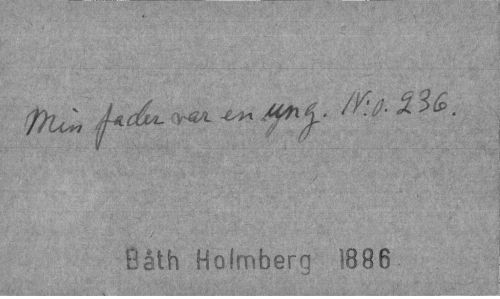 Min fader var en yng. N:o. 236.
Båth Holmberg 1886